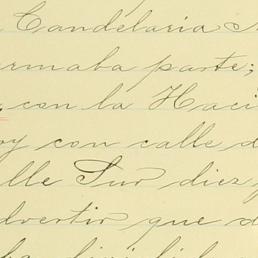 Candelaria
rmaba parte;
con la Haci
oy con calle d
lle Sur diez y
dvertir que d